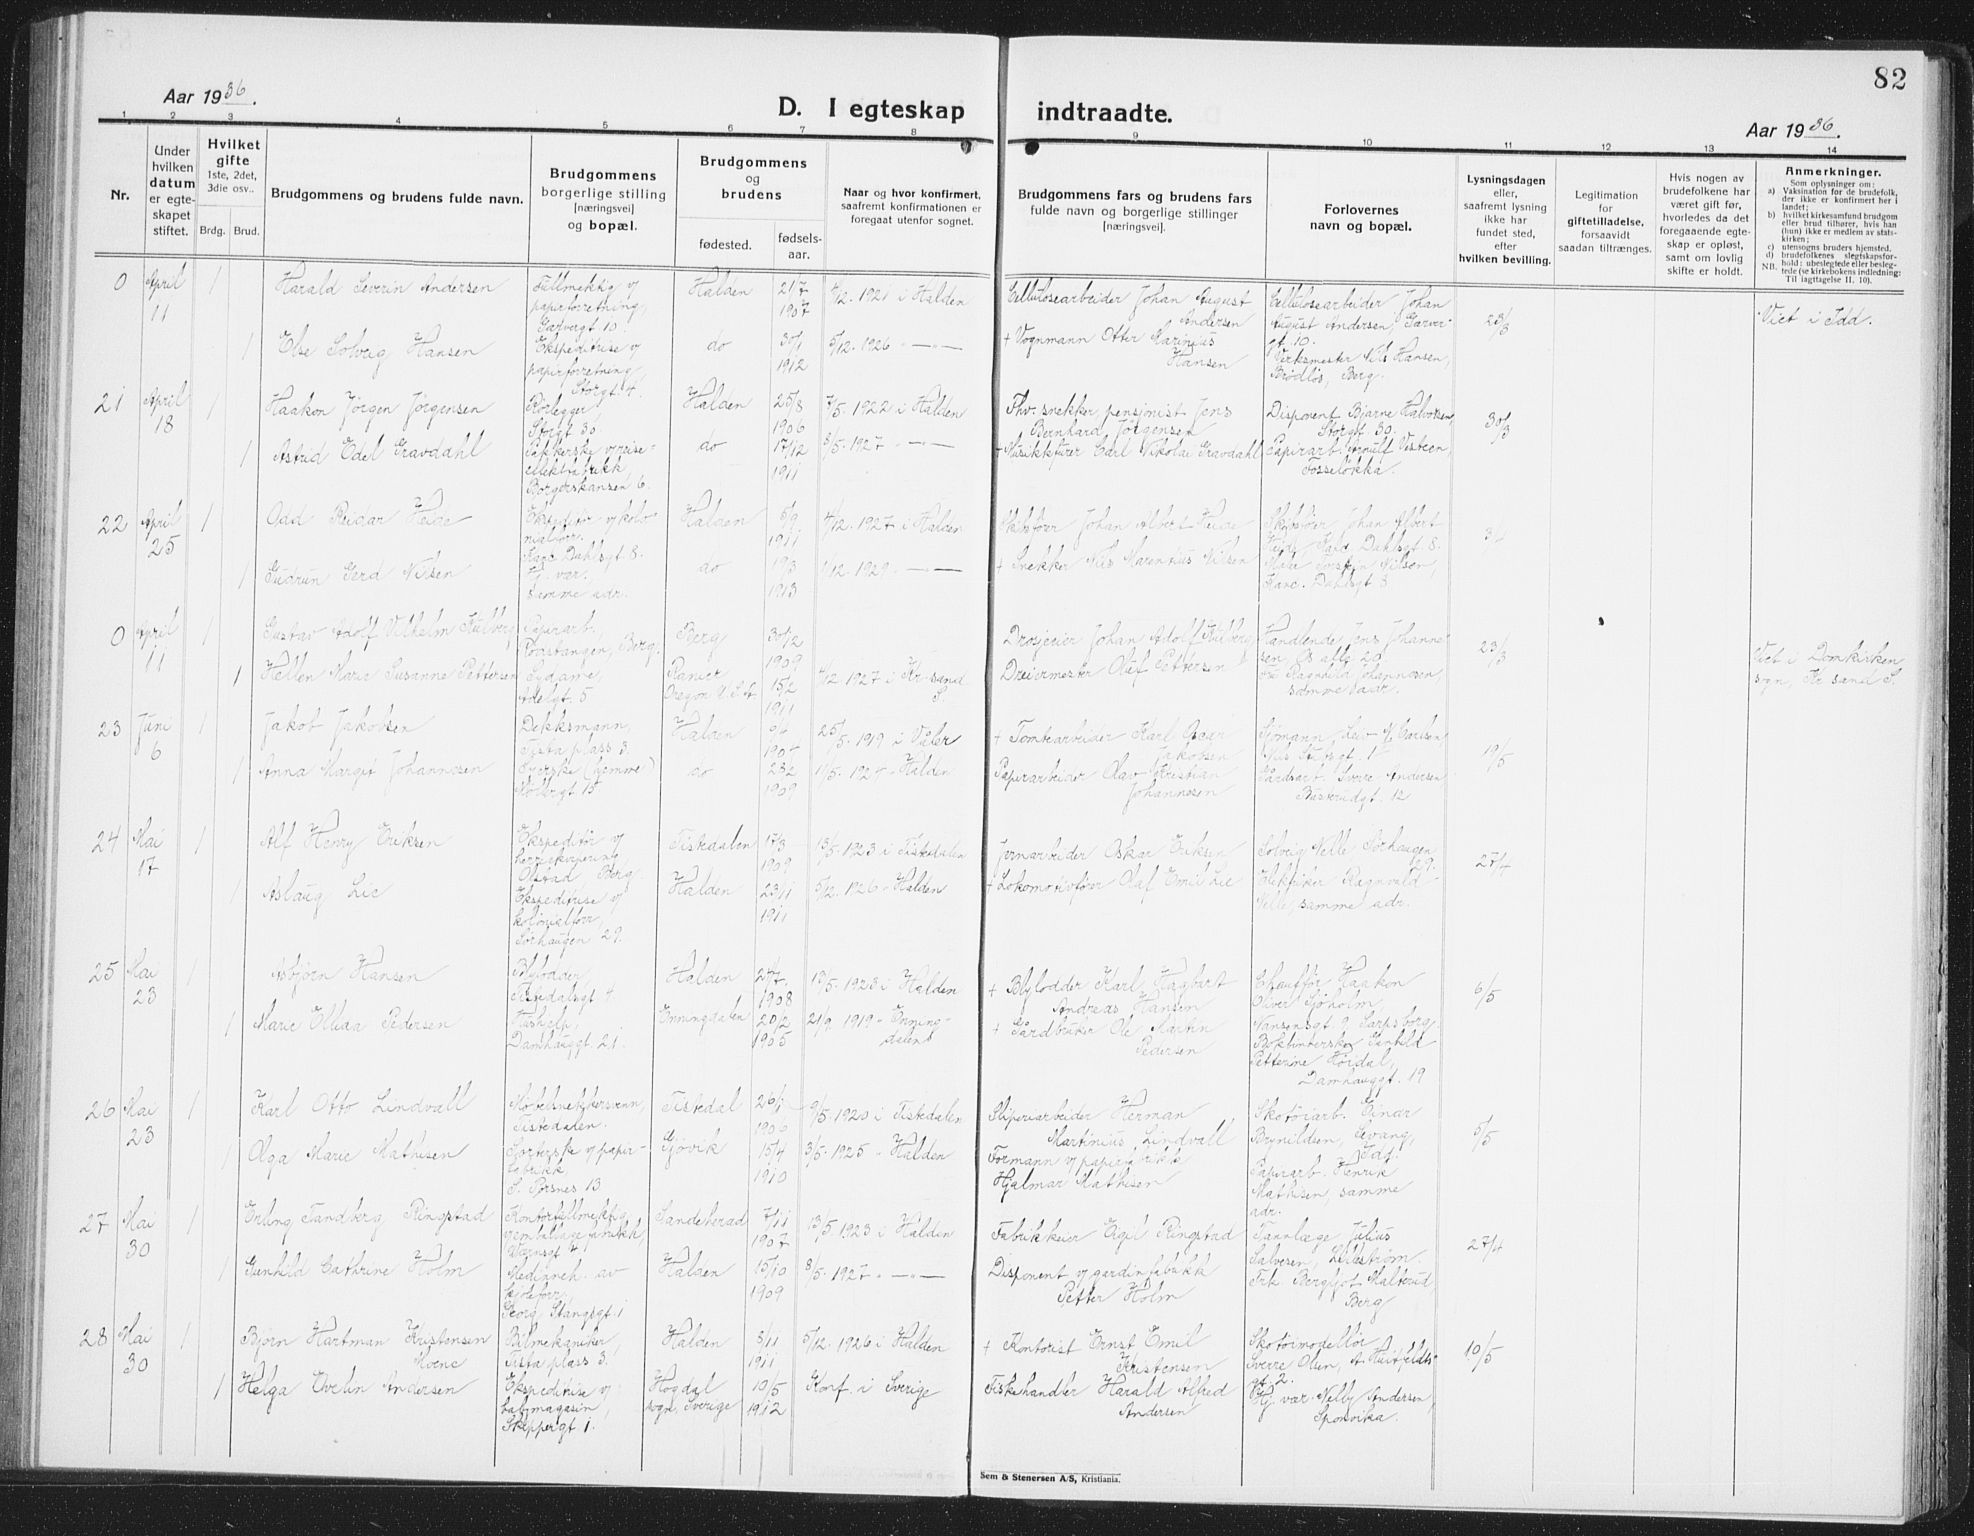 82
Aar 1936.
D. I egteskap indtraadte.
Aar 1936.
1 2 3 4 5 6 7 8 9 10 11 12 13 14
Nr.
Under hvilken datum er egte-skapet stiftet.
Hvilket gifte 1ste, 2det, 3die osv..
Brdg. Brud.
Brudgommens og brudens fulde navn.
Brudgommens borgerlige stilling [næringsvei] og bopæl.
Brudgommens og brudens
fødested. fødsels-aar.
Naar og hvor konfirmert, saafremt konfirmationen er foregaat utenfor sognet.
Brudgommens fars og brudens fars fulde navn og borgerlige stillinger [næringsvei].
Forlovernes navn og bopæl.
Lysningsdagen eller, saafremt lysning ikke har fundet sted, efter hvilken bevilling.
Legitimation for giftetilladelse, forsaavidt saadan tiltrænges.
Hvis nogen av brudefolkene har været gift før, hvorledes da det foregaaende egte-skap er opløst, samt om lovlig skifte er holdt.
Anmerkninger.
Som oplysninger om:
a) Vaksination for de brudefolk, der ikke er konfirmert her i landet;
b) hvilket kirkesamfund brudgom eller brud tilhører, hvis han (hun) ikke er medlem av stats-kirken;
c) utensogns bruders hjemsted.
d) brudefolkenes slegtskapsfor-hold: ubeslegtede eller besleg-tede (se kirkebokens indledning:
NB. Til iagttagelse II. 10).
0 April 11 1 Harald Severin Andersen Fullmektig v/ papirforretning, Garvergt 10 Halden 21/7 1907 1921 i Halden Cellulosearbeider Johan August Andersen Cellulosearbeider Johan August Andersen, Garver-gt. 10. 23/3 Viet i Idd.
1 Else Solveig Hansen Ekspeditrise v/ papirforretning, Storgt. 4 do 30/1 1912 5/12. 1926 " — " — + Vognmann Otter Marinius Hansen Verksmester Nils Hansen, Brödlös, Berg.
21 April 18 1 Haakon Jörgen Jörgensen Rörlegger, Storgt 30. Halden 25/8 1906 7/5. 1922 i Halden Fhv. snekker, pensjonist Jens Bernhard Jörgensen Disponent Bjarne Halvorsen, Storgt 30. 30/3
1 Astrid Edel Gravdahl Pakkerske v/ reise-effektfabrikk, Borgerskansen 6. do 17/12 1911 8/5. 1927 " — " — + Musikkfürer Carl Nikolai Gravdahl Papirarb. Arnulf Visteen, Fosseløkka.
22 April 25 1 Odd Reidar Heide Ekspeditör v/ kolo-nialforr. Hans Dahlsgt. 8. Halden 5/9 1911 4/12. 1927 i Halden Skibsförer Johan Albert Heide Skibsförer Johan Albert Heide, Dahlsgt 8. 3/4
1 Gudrun Gerd Nilsen Hj. vær. samme adr. do 19/3 1913 1/12. 1929 " — " — + Snekker Nils Marenius Nilsen Maler Nilsen, Dahlsgt 8
0 April 11 1 Gustav Adolf Vilhelm Papirarb., Berg. Berg 30/12 1909 Drosjeeier Johan Adolf Handlende Jens Johanne-sen, Os alle 20. 23/3 Viet i Domkirken sogn, Kr.sand S.
1 Hellen Marie Susanne Pettersen Sydame, Adelgt. 5 Ranier Oregon U.S.A 15/2 1911 4/12. 1927 i Kr.sand S. Dreiermester Oluf Pettersen Fru Ragnhild Johannesen, samme adr.
23 Juni 6 1 Jakob Jakobsen Dekksmann, Tista plass 3. Halden 1904 25/5. 1919 i Våler + Tomtearbeider Karl Oscar Jakobsen Sjömann Leiv M. Carlsen, Nils Stubsgt. 1 19/5
1 Anna Margit Johannesen Syerske (hjemme) 15 do 23/2 1909 11/5. 1924 - Halden Papirarbeider Olav Kristian Johannesen Gårdsarb. Sverre Andersen, Busterudgt. 12
24 Mai 17 1 Alf Henry Eriksen Ekspeditör v/ herreekvipering, Olstad, Berg Tistedalen 17/3 1909 13/5. 1923 i Tistedalen Jernarbeider Oskar Eriksen Solveig Nelle, Sörhaugen 29. 27/4
1 Aslaug Lie Ekspeditrise v/ kolonialforr., Sörhaugen 29. Halden 23/11 1911 5/12. 1926 - Halden + Lokomotivförer Olaf Emil Lie Elektriker Ragnvald Nelle, samme adr.
25 Mai 23 1 Asbjörn Hansen Blylodder, Tistedalsgt 4. Halden 24/7. 1908 13/5. 1923 i Halden + Blylodder Karl Hagbart Andreas Hansen Chauffør Haakon Oliver Sjöholm, Nansensgt. 9, Sarpsborg 6/5
1 Marie Pedersen Hushjelp, Damhauggt. 21. Enningdalen 20/2 1905 21/9 1919 - Enning-dalen + Gårdbruker Ole Martin Pedersen Bokbinderske Gunhild Petterine Höidal, Damhauggt. 19
26 Mai 23 1 Karl Otto Lindvall Möbelsnekkersvenn, Tistedalen. Tistedal 26/1 1906 9/5. 1920 i Tistedalen Sliperiarbeider Herman Martinius Lindvall Skotöiarb. Einar Brynildsen, Levang, Idd. 5/5
1 Olga Marie Mathisen Sorterske v/ papir-fabrikk S. Porsnes 13 Gjövik 15/4 1910 3/5. 1925 - Halden Formann v/ papirfabrikk Hjalmar Mathisen Papirarb. Henrik Mathisen, samme adr.
27 Mai 30 1 Erling Tandberg Ringstad Kontorfullmektig v/ emballagefabrikk, Værnsgt 7 Sandeherad 7/11 1907 13/5. 1923 i Halden Fabrikkeier Eigil Ringstad Tannlæge Julius Salvesen, Lilleström. 27/4
1 Gunhild Cathrine Holm Medinneh. av kjoleforr., Georg Stangsgt. 1 Halden 15/10 1909 8/5. 1927 " — " — Disponent v/ gardinfabrikk Petter Holm Frk. Bergljot Malterud, Berg
28 Mai 30 1 Björn Hartman Kristensen Moene Bilmekaniker, Tista plass 3. Halden 8/11 1911 5/12. 1926 i Halden + Kontorist Ernst Emil Kristensen Skotöimodellör Sverre Olsen, A. Huitfeldts-gt. 2. 10/5
1 Helga Evelin Andersen Ekspeditrise v/ babymagasin, Skippergt 1. Hogdal sogn, Sverige 10/5 1912 Konf. i Sverige Fiskehandler Harald Alfred Andersen Hj. vær. Nelly Andersen, Sponvika.
Sem & Stenersen A/S, Kristiania.